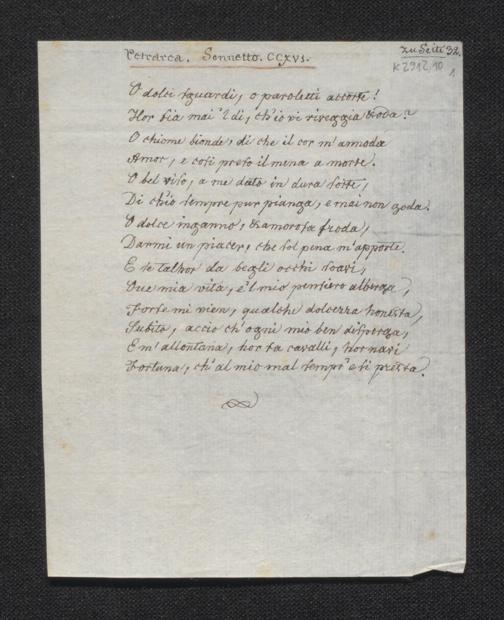 Petrarca. Sonnetto. CCXVI.
zu Seite 32.
K 2912,10
1
O dolci sguardi, o paroletti accorte!
Hor fia mai 'l dì, ch'io vi riveggia & oda?
O chiome bionde, di che il cor m'annoda
Amor, e cosi preso il mena a morte.
O bel viso, a me dato in dura sorte,
Di ch'io sempre pur pianga, e mai non goda.
O dolce inganno, & amorosa froda,
Darmi un piacer, che sol pena m'apporte.
E se talhor da begli occhi soavi,
Ove mia vita, e'l mio pensiero alberga,
Forse mi vien, qualche dolcezza honesta,
Subito, accio ch'ogni mio ben disperga,
E m'allontana, hor fa cavalli, hor navi
Fortuna, ch'al mio mal sempr' e si presta.